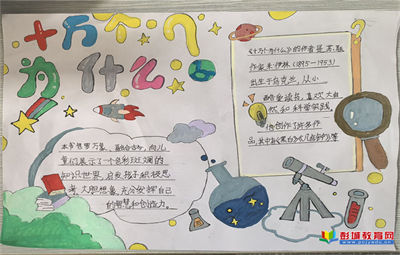 十万个?
为什么
《十万个为什么》的作者是苏联
作家米·伊林(1895-1953)
出生于乌克兰,从小
酷爱读书,喜欢大自
然和科学实践,
他创作了许多作
品,其中
本书包罗万象,融会古今,向儿
童们展示了一个色彩斑斓的
知识世界,启发孩子积极思
考,大胆想象,充分发挥自己
的智慧和创造力。
彭城教育网